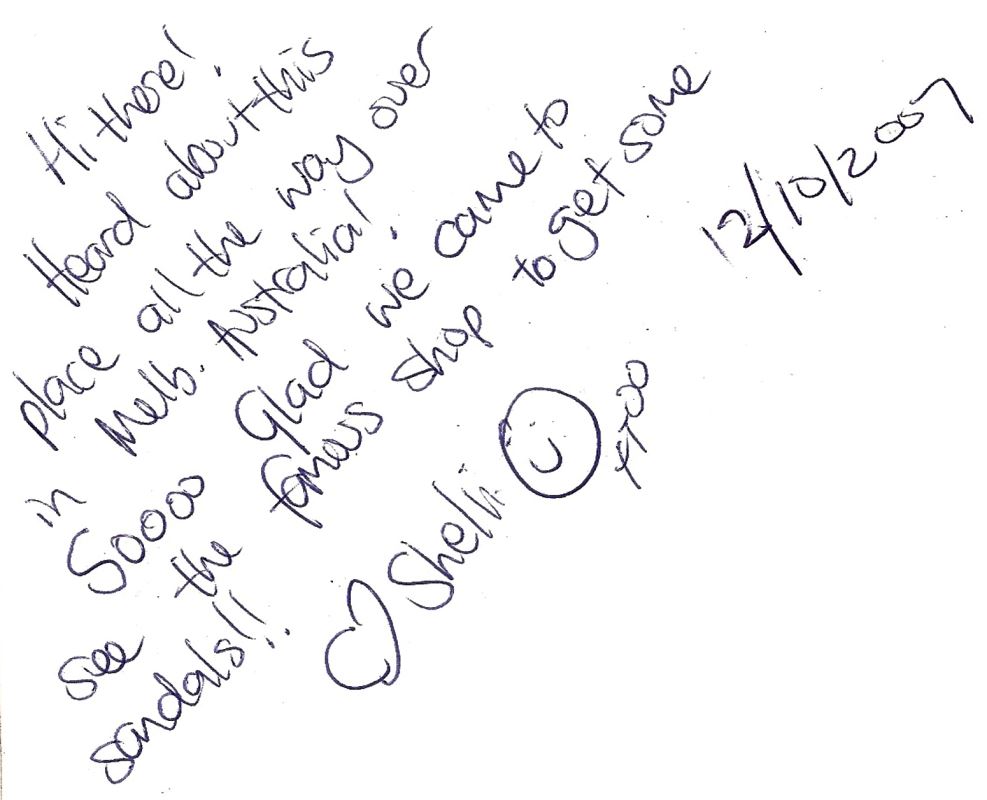 Hi there!
Heard about this
place all the way over
in Melb. Australia!
Soooo Glad we came to
see the famous shop to get some
sandals!!
Shelli
xx00
12/10/2007